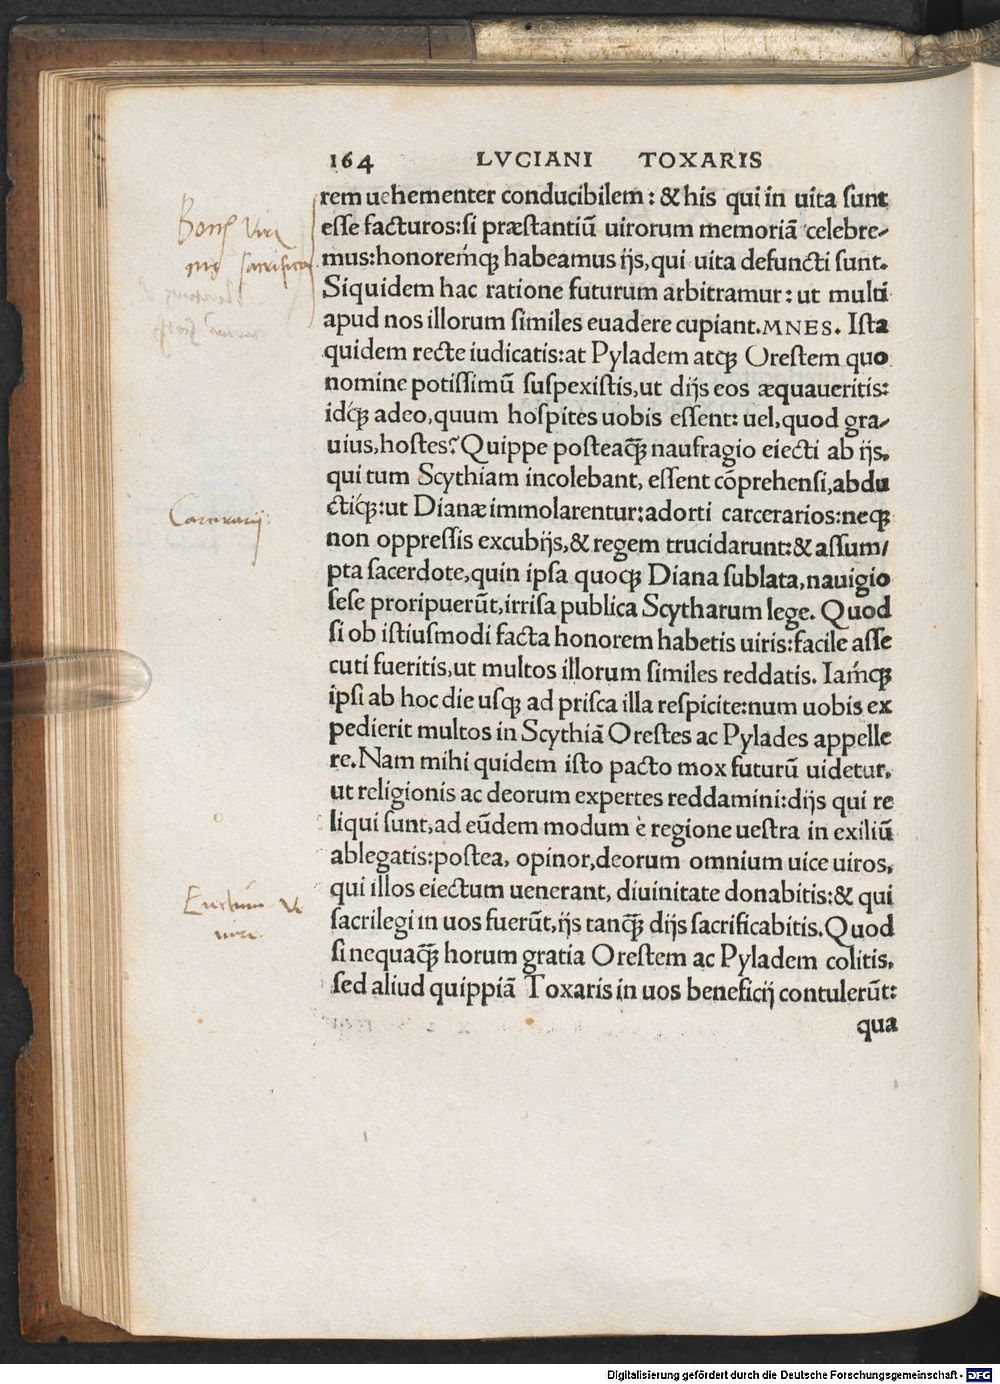 164 LVCIANI TOXARIS
rem uehementer conducibilem: & his qui in uita sunt
esse facturos: si præstantiũ uirorum memoriã celebre-
mus: honoremq́ꝫ habeamus ijs, qui uita defuncti sunt.
Siquidem hac ratione futurum arbitramur: ut multi
apud nos illorum similes euadere cupiant. MNES. Ista
quidem recte iudicatis: at Pyladem atqꝫ Orestem quo
nomine potissimũ suspexistis, ut dijs eos æquaueritis:
idq́ꝫ adeo, quum hospites uobis essent: uel, quod gra-
uius, hostes? Quippe posteaq̃ꝫ naufragio eiecti ab ijs,
qui tum Scythiam incolebant, essent cõprehensi, abdu
ctiq́ꝫ: ut Dianæ immolarentur: adorti carcerarios: neqꝫ
non oppressis excubijs, & regem trucidarunt: & assum/
pta sacerdote, quin ipsa quoqꝫ Diana sublata, nauigio
sese proripuerũt, irrisa publica Scytharum lege. Quod
si ob istiusmodi facta honorem habetis uiris: facile asse
cuti fueritis, ut multos illorum similes reddatis. Iamq́ꝫ
ipsi ab hoc die usqꝫ ad prisca illa respicite: num uobis ex
pedierit multos in Scythiã Orestes ac Pylades appelle
re. Nam mihi quidem isto pacto mox futurũ uidetur,
ut religionis ac deorum expertes reddamini: dijs qui re
liqui sunt, ad eũdem modum è regione uestra in exiliũ
ablegatis: postea, opinor, deorum omnium uice uiros,
qui illos eiectum uenerant, diuinitate donabitis: & qui
sacrilegi in uos fuerũt, ijs tanq̃ꝫ dijs sacrificabitis. Quod
si nequaq̃ꝫ horum gratia Orestem ac Pyladem colitis,
sed aliud quippiã Toxaris in uos beneficij contulerũt:
qua
Carcerarij:
Digitalisierung gefördert durch die Deutsche Forschungsgemeinschaft - DFG